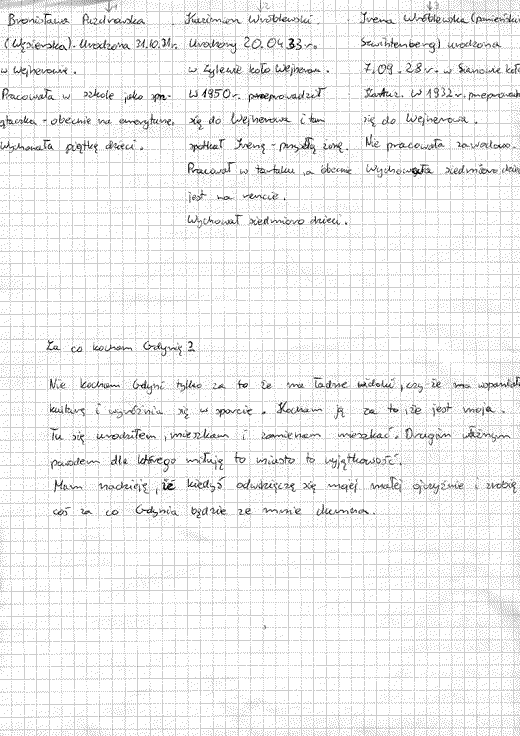 Bronisława Puzdrowska
(Węsierska). Urodzona 21.10.31r.
w Wejherowie.
Pracowała w szkole jako sprzątaczka - obecnie na emeryturze.
Wychowała piątkę dzieci.
Kazimierz Wróblewski.
Urodzony 20.04.33r.
w Zylewie koło Wejherowa.
W 1950r. przeprowadził
się do Wejherowa i tam
spotkał Irenę - przyszłą żonę.
Pracował w tartaku, a obecnie
jest na rencie.
Wychował siedmioro dzieci.
Irena Wróblewska (panieńsko
) urodzona
7.09.28r. w Sianowie koło
Kartuz. W 1932r. przeprowadz
się do Wejherowa.
Nie pracowała zawodowo.
Wychowała siedmioro dzieci
Za co kocham Gdynię?
Nie kocham Gdyni tylko za to że ma ładne widoki, czy że ma wspaniałą
kulturę i wyróżnia się w sporcie. Kocham ją za to, że jest moja.
Tu się urodziłem, mieszkam i zamieram mieszkać. Drugim ważnym
powodem dla którego miłuję to miasto to wyjątkowość.
Mam nadzieję, że kiedyś odwdzięczę się mojej małej ojczyźnie i zrobię
coś za co Gdynia będzie ze mnie dumna.